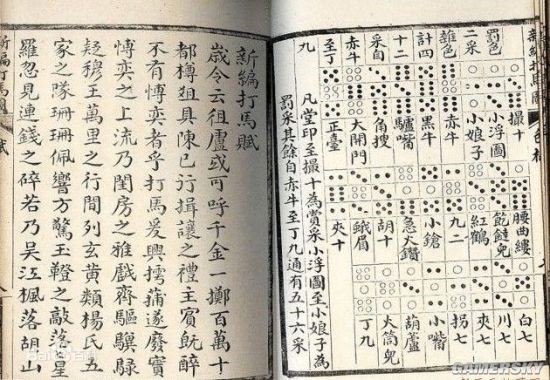 新編打馬圖
罰色
二采
雜色
計四
十二
采自
赤牛
至丁
九
撮十
小浮圖
小娘子
赤牛
黑牛
驢嘴
角搜
大開門
正臺
腰曲縷
紅鶴
九二
小鎗
急火鑽
胡十
蛾眉
夾十
白七
川七
夾七
拐七
小嘴
葫蘆
火筒兒
丁九
凡堂印至撮十為賞采小浮圖至小娘子為
罰采其餘自赤牛至丁九通有五十六采
新編打馬賦
歲令云徂盧或可呼千金一擲百萬十
都樽俎具陳已行揖讓之禮主賓既醉
不有博奕者乎打馬爰興摴蒱遂廢實
博奕之上流乃閨房之雅戲齊驅驥騄
疑穆王萬里之行間列玄黃類楊氏五
家之隊珊珊佩響方驚玉鐙之敲落星
羅忽見連錢之碎若乃吳江楓落胡山
新編打馬圖
賦
GAMERSKY